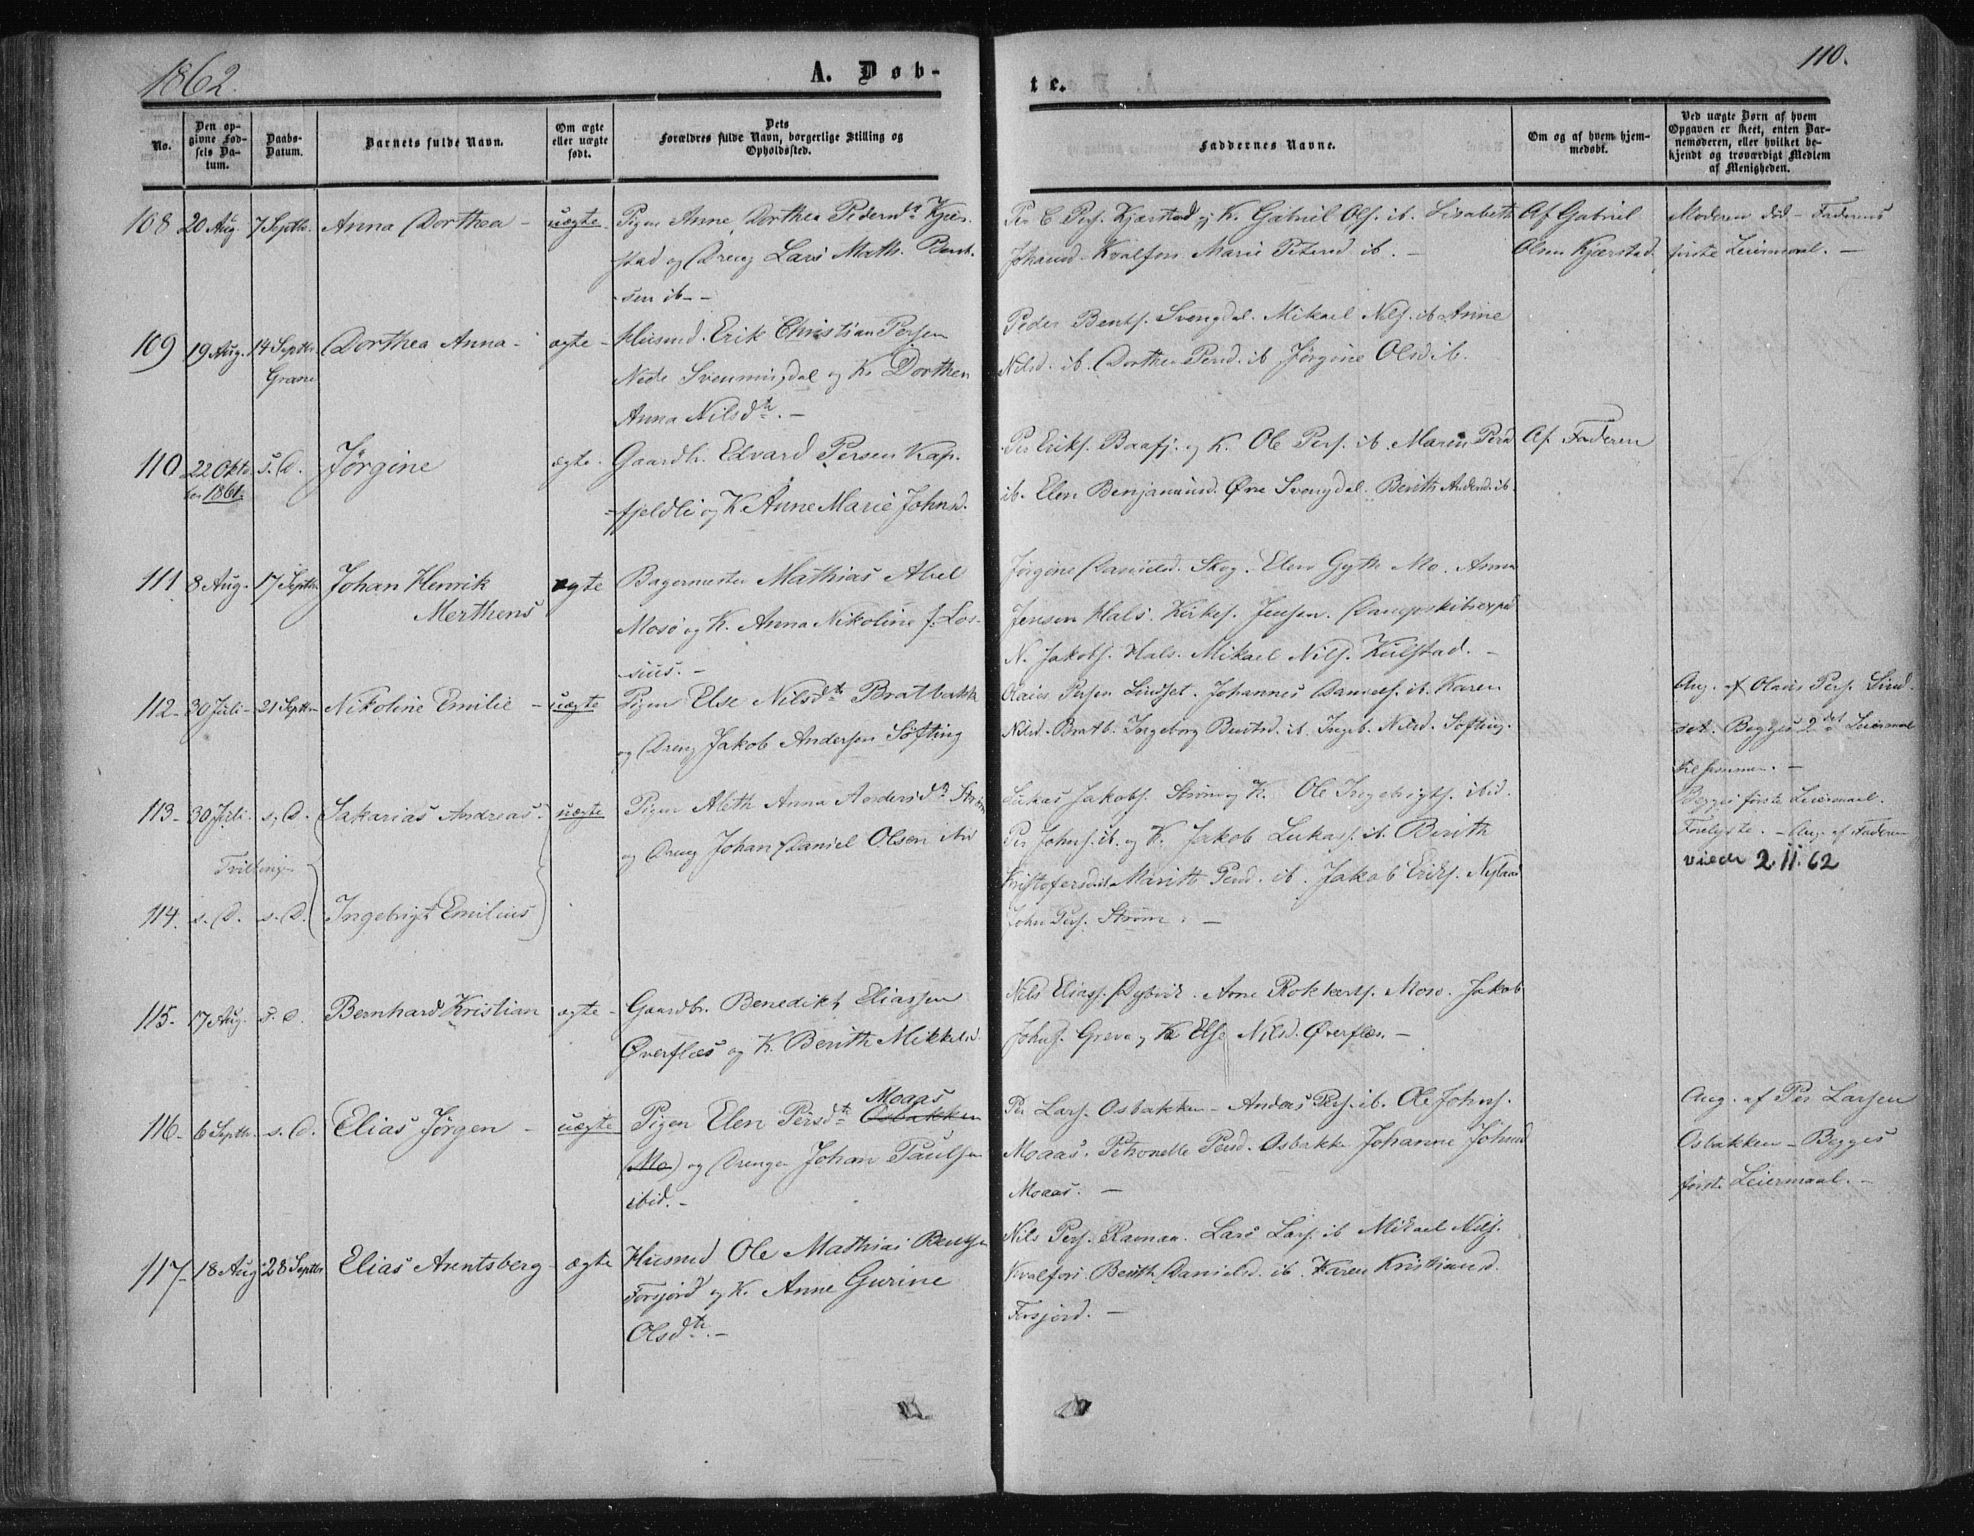 1862.
A. Døb-
te.
110.
No.
Den op-
givne Fød-
sels Da-
tum.
Daabs-
Datum.
Barnets fulde Navn.
Om ægte
eller uægte
født.
Dets
Forældres fulde Navn, borgerlige Stilling og
Opholdssted.
Faddernes Navne.
Om og af hvem hjem-
medøbt.
Ved uægte Børn af hvem
Opgaven er skeet, enten Bar-
nemoderen, eller hvilket be-
kjendt og troværdigt Medlem
af Menigheden.
108 20 Aug. 7 Septbr. Anna Dorthea - uægte Pigen Anne Dorthea Pedersdtr Kjær-
stad og Dreng Lars Math. Bent-
sen ib. -
Per C. Pers. Kjærstad og K. Gabriel Ols. ib. Lisabeth
Johansd. Kvalfors Marie Petersd ib. -
Af Gabriel
Olsen Kjærstad
Moderen død - Faderens
første Leiermaal. -
109 19 Aug. 14 Septbr. Dorthea Anna - ægte - Husmd. Erik Christian Persen
Grane
Nedre Svenningdal og K. Dorthea
Anna Nilsdtr. -
Peder Bents. Svengdal. Mikael Nils. ib. Anne
Nilsd. ib. Dorthea Persd. ib Jørgine Olsd ib.
110 22 Okto- s. D. Jørgine ægte. Gaardb. Edvard Persen Kap-
ber 1861.
fjeldli og K. Anne Marie Johnsd.
Per Eriks. Baafj. og K. Ole Pers. ib. Maren Persd
ib. Elen Benjaminsd. Øvre Svengdal. Berith Andersd. ib.
Af Faderen
111 8 Aug. 17 Septbr Johan Henrik ægte Bagermester Mathias Abel
Merthens
Mosø og K. Anna Nikoline f. Los-
sius. -
Jørgine Danielsd. Skog. Elen Gyth Mo. Anna
Jensen Hals. Kirkes. Jensen. Dampskibsexped
N. Jakobs. Hals. Mikael Nils. Kulstad. -
112 - 30 Juli - 21 Septbr - Nikoline Emilie - uægte Pigen Else Nilsdtr Bratbakk
og Dreng Jakob Andersen Søfting
Olaus Persen Lindset. Johannes Daniels. ib. Karen
Nilsd. Bratb. Ingeborg Bentsd. ib. Ingeb. Nilsd. Søfting.
Ang. af Olaus Pers. Lind-
set. Begges 2det Leiermaal
tilsammen. -
113 - 30 Juli - s. D. Sakarias Andreas. uægte Pigen Aleth Anna Andersdtr Strøm
og Dreng Johan Daniel Olsen
Tvillinger
Lukas Jakobs. Strøm og K. Ole Ingebrigts. ibid.
Per Johns. ib. og K. Jakob Lukass. ib. Berith
Kristofersd. ib Marith Persd. ib. Jakob Eriks. Nylaas
John Pers. Strøm. -
Begges første Leiermaal.
- Ang. af Faderen
viede 2.11.62
114. s. D. s. D. Ingebrigt Emilius
115 - 17 Aug. s. D. Bernhard Kristian ægte - Gaardbr. Benedikt Eliassen
Øverflæs og K. Berith Mikkelsd.
Nils Eliass. Dybvik. Arne Rokkerts. Mosø. Jakob
Johns. Greva og K. Else Nilsd. Øverflæs. -
116 - 6 Septbr. s. D. Elias Jørgen - uægte Pigen Elen Persdtr Osbakken
Moaas
(Mo) og Drengen Johan Paulsen
ibid. -
Per Lars. Osbakken - Anders Pers. ib. Ole Johns.
Moaas. Petronelle Persd. Osbakk. Johanne Johnsd
Moaas. -
Ang. af Per Larsen
Osbakken - Begges
første Leiermaal. -
117 - 18 Aug. 28 Septbr Elias Arntsberg - ægte Husmd Ole Mathias Bentsen
Forsjord og K. Anne Gurine
Olsdtr. -
Nils Pers. Ramaa. Lars Lars. ib Mikael Nils.
Kvalfors Berith Danielsd. ib. Karen Kristiansd.
Forsjord. -